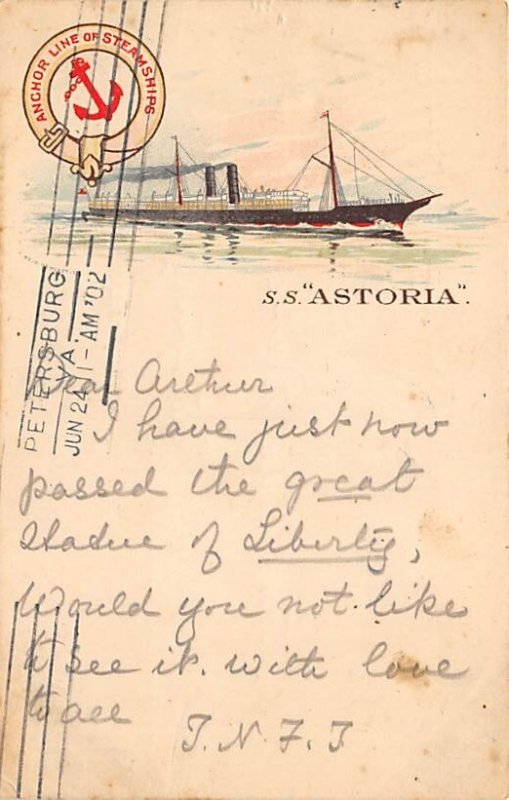 ANCHOR LINE OF STEAMSHIPS
S.S. "ASTORIA".
PETERSBURG
VA.
JUN 24 11-AM '02
Dear Arethur
I have just now
passed the great
statue of Liberty,
Would you not like
to see it. with love
to all
J. N. F. J